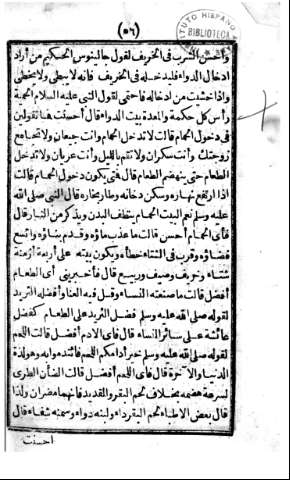 (٥٦)
INSTITUTO HISPANO
BIBLIOTECA
واحسن الشرب فى الخريف لقول جالينوس الحكيم من اراد
ادخال الدواء فليدخله فى الخريف فانه لا يبطى ولا يخطى
واذا خشيت من ادخاله فاحتمى لقول النبى عليه السلام الحمية
راس كل حكمة والمعدة بيت الداء قال احسنت فما تقولين
فى دخول الحمام قالت لا تدخل الحمام وانت جيعان ولا تجامع
زوجتك وانت سكران ولا تنم بالليل وانت عريان ولا تدخل
الطعام حتى ينهضم الطعام قال فمتى يكون دخول الحمام قالت
اذا ارتفع نهاره وسكن دخانه وطار بخاره قال النبى صلى الله
عليه وسلم نعم البيت الحمام ينظف البدن ويذكر من النار قال
فاى الحمام احسن قالت ما عذب ماؤه وقدم بناؤه واتسع
فضاؤه وقرب فى الشتاء خطأه ويكون بيته على اربعة ازمنة
شتاء وخريف وصيف وربيع قال فاخبرينى اى الطعام
افضل قالت ما صنعته النساء وقل فيه العنا وافضله الثريد
لقوله صلى الله عليه وسلم فضل الثريد على الطعام كفضل
عائشة على سائر النساء قال فاى الادم افضل قالت اللحم
لقوله صلى الله عليه وسلم خير ادامكم اللحم فائدة وابه وهو لذة
الدنيا والآخرة قال فاى اللحم افضل قالت الضأن الطرى
لسرعة هضمه بخلاف لحم البقر والقديد فانهما مضران ولذا
قال بعض الاطباء لحم البقر داء ولبنه دواء وسمنه شفاء قال
احسنت